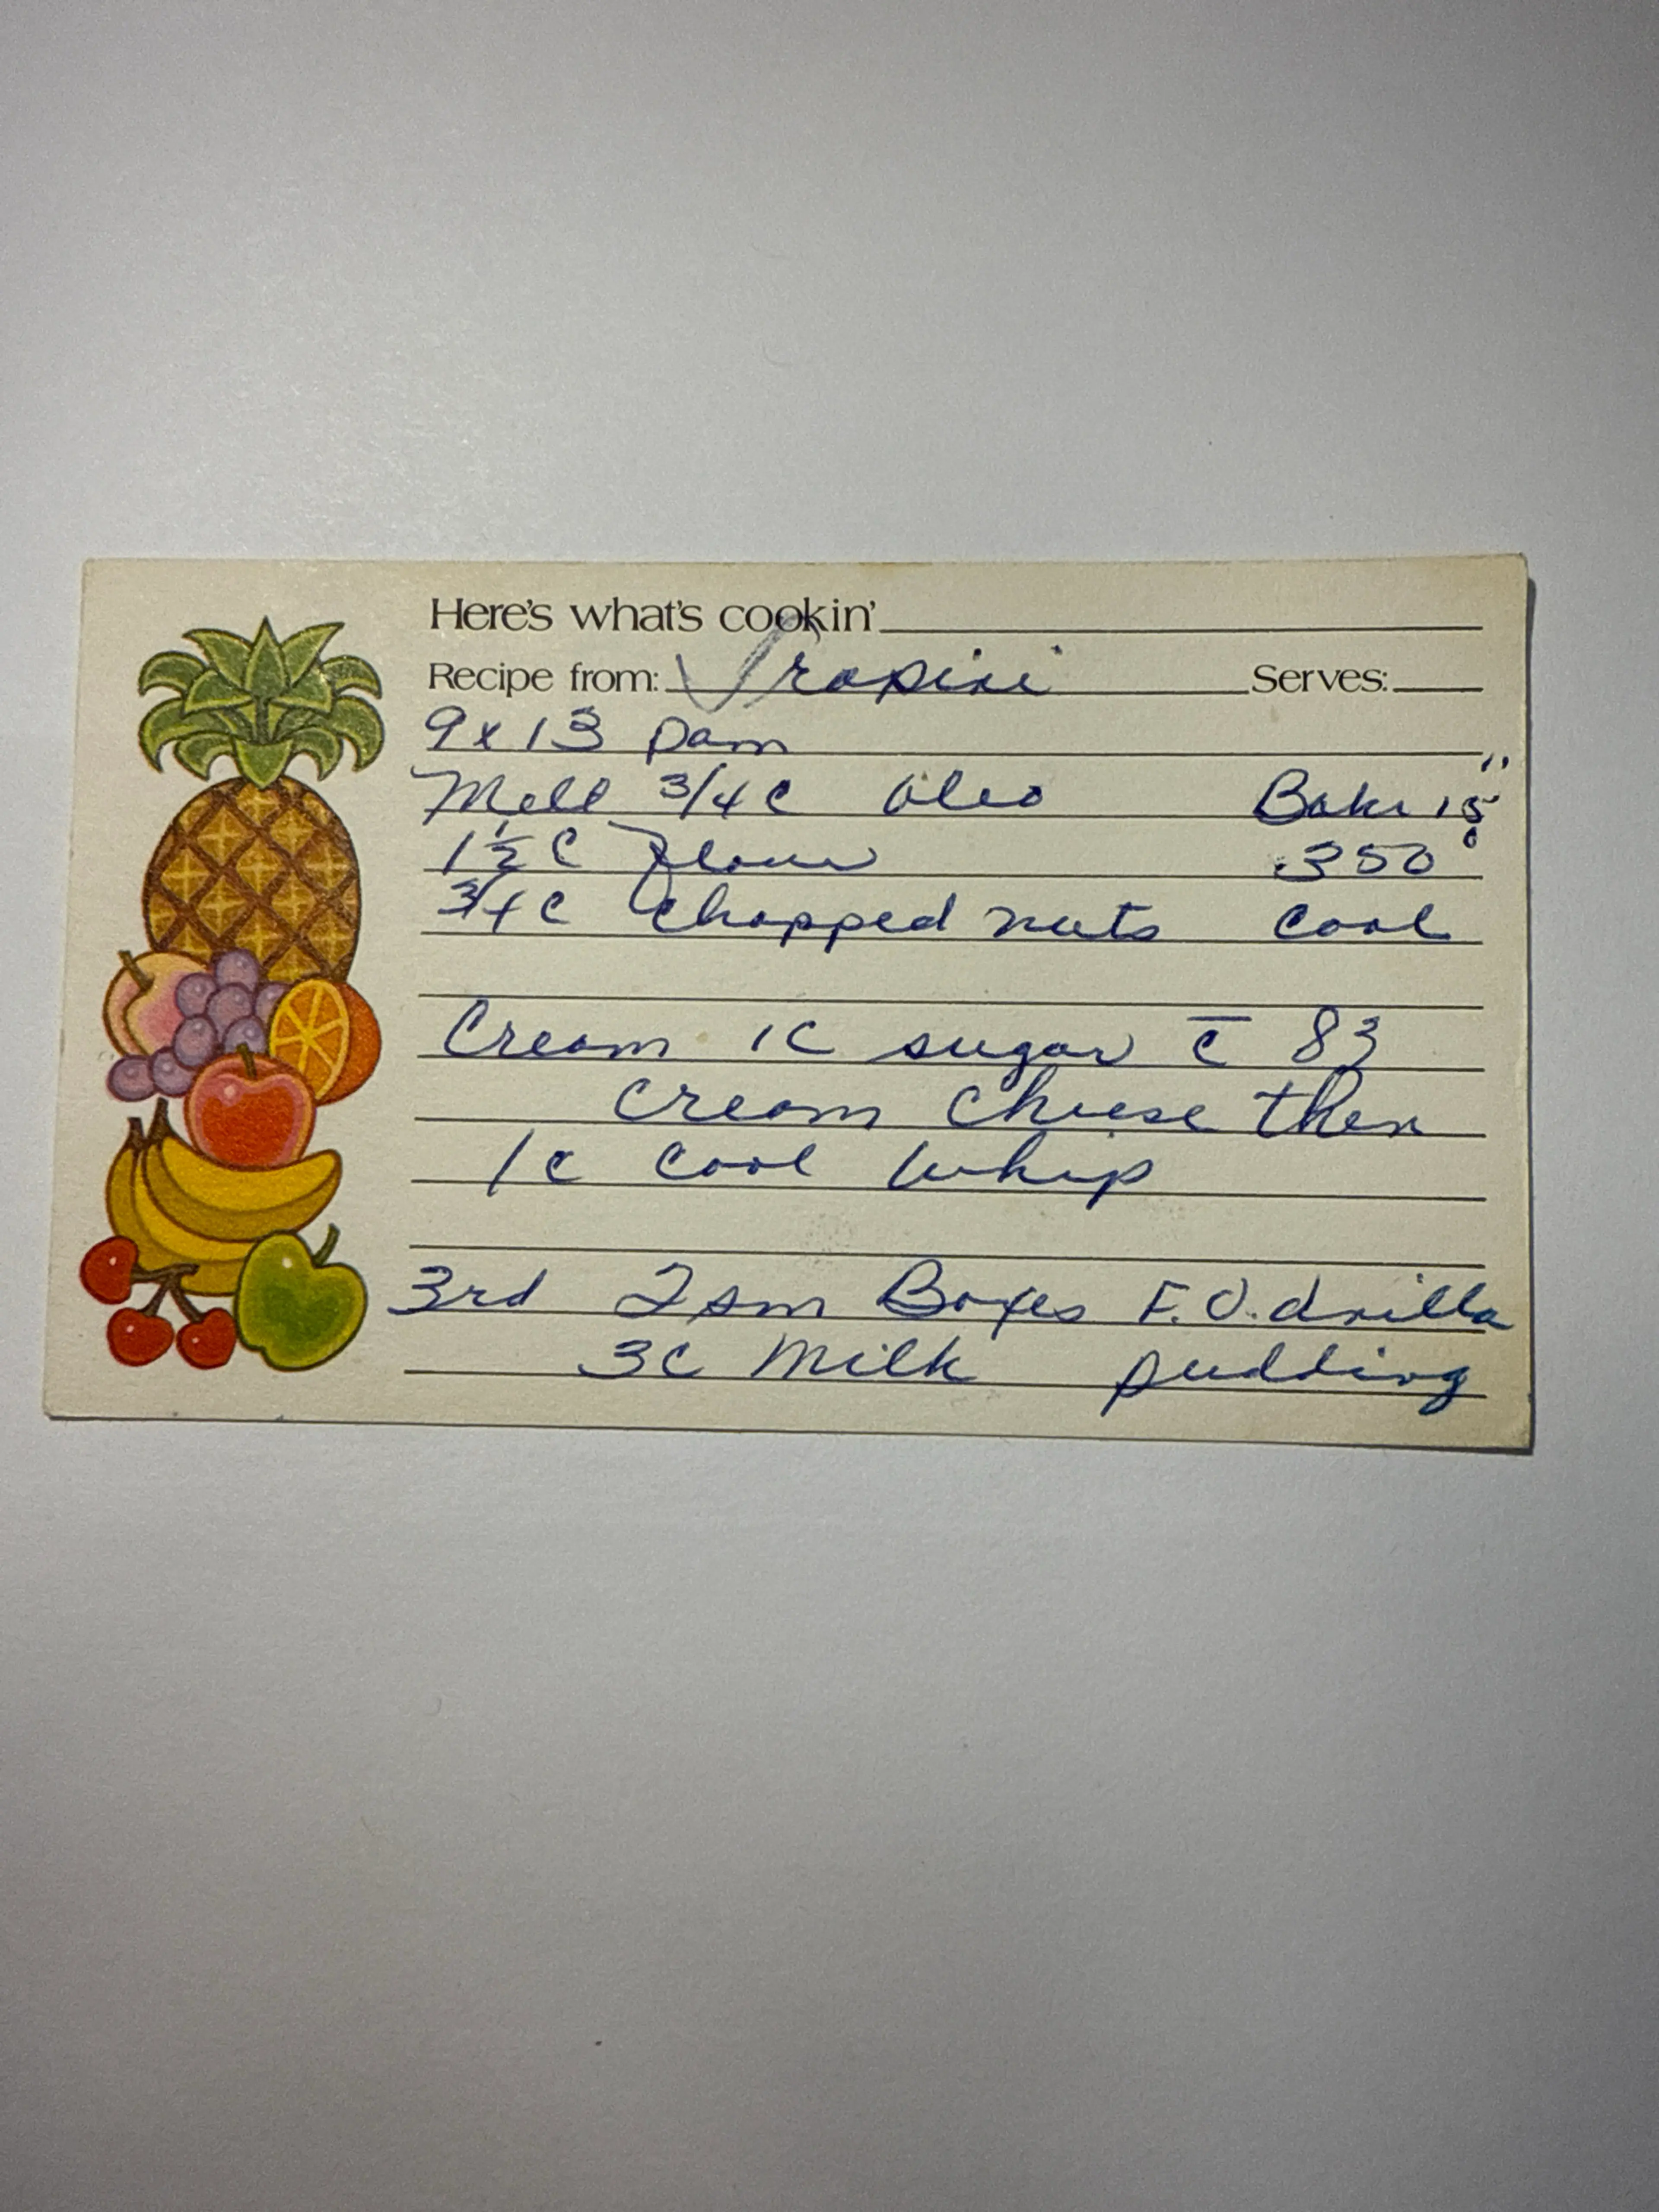 Here's what's cookin'
Recipe from: Tropini Serves:
9 x 13 Pam
Melt 3/4 C Oleo Bake 15"
1 1/2 C Flour 350°
3/4 C Chopped nuts Cool
Cream 1C sugar c̄ 83
cream cheese then
1c Cool Whip
3rd 2 sm Boxes F.V.
3C Milk pudding